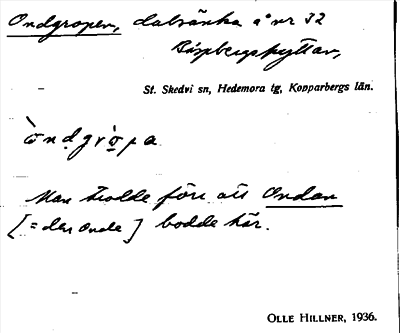 Ondgropen, dalsänka å nr 32
Bispbergshyttan,
St. Skedvi sn, Hedemora tg, Kopparbergs län.
òndgrò̱pa
Man trodde förr att Ondan
[= den Onde] bodde här.
OLLE HILLNER, 1936.